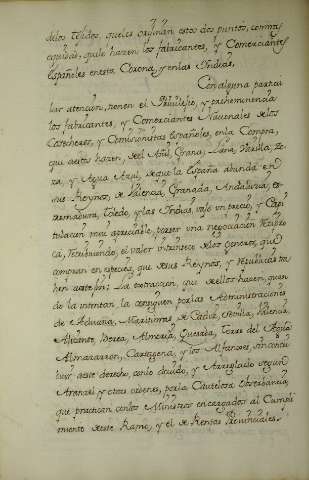 delos Texidos, que les originan estos dos puntos, con mas
equidad, que le hazen los fabricantes, y Comerciantes
Españoles en esta Corona, y en las Indias.
Con alguna particu
lar atencion, tienen el Privilejio, y preheminencia
los fabricantes, y Comerciantes Nacionales delos
Cosecheros, y Comisionistas Españoles, en la Compra,
que destos hazen, del Añil, Grana, Lana, Seda,
y Agua Azul, de que la España abunda en
sus Reynos, de Valencia, Granada, Andalucia, es-
tremadura, Toledo, y las Indias, cuyo precio, y Capi
tulacion mui apreciable, poseer una negociacion Recipro
ca, retribuiendo, el valor intrinseco delos generos, que
compran en especie, que deesos Reynos, y Republicas tra
hen a este fin; La extraccion, que dellos hazen, quan
do la intentan, la consiguen por las Administraciones
de Aduana, Maritimas de Cadiz, Sevilla, Valencia,
Alicante, Almeria, Quesada, Vera, del Aguila
Almazarron, Cartagena, y los Alfaques, sin contri
buir a este derecho, como devido, y Arreglado segun
Aranzel y otras ordenes, por la Cautelosa Observancia
que practican con los Ministros encargados al Cumpli
miento de este Ramo, y el de Rentas Provinciales.